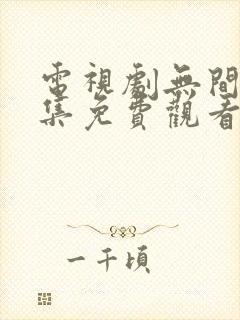 電視劇無間
集免費觀看
一千頃